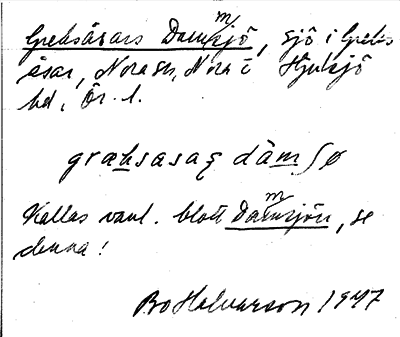 Greksåsars Dammsjö, sjö i Greks
åsar, Nora sn, Nora o Hjulsjö
hd, Ör. l.
græksasaʂ dàmʃø
Kallas vanl. blott Dammsjön, se
denna!
Bo Halvarson 1947